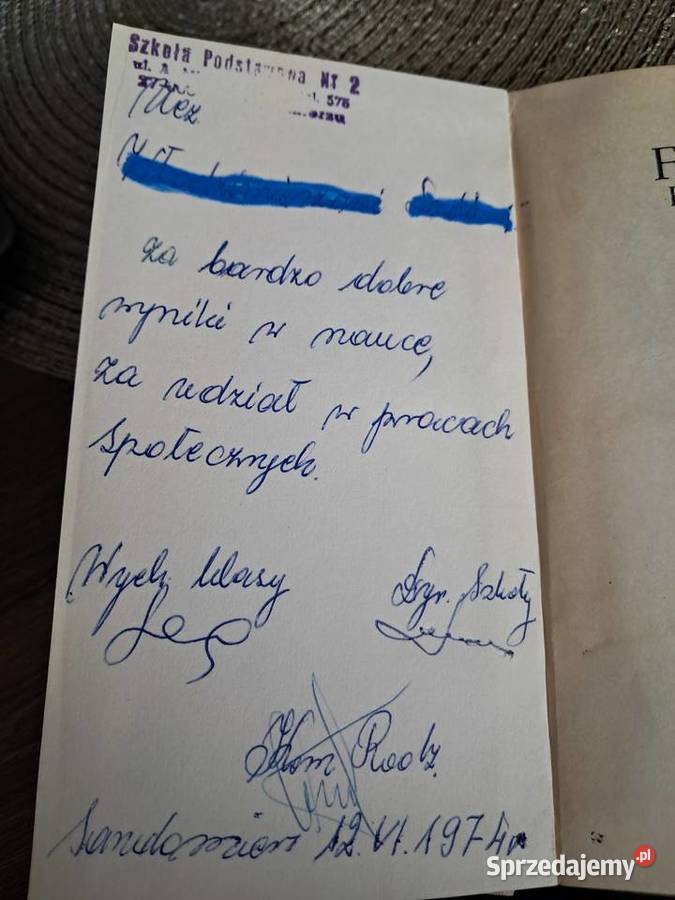 Szkoła Podstawowa Nr 2
ul. A
578
Ucz.
za bardzo dobre
wyniki w nauce,
za udział w pracach
społecznych.
Wych. klasy
Dyr. Szkoły
Kom Rodz.
Sandomierz 12.VI.1974r
F
Sprzedajemy.pl